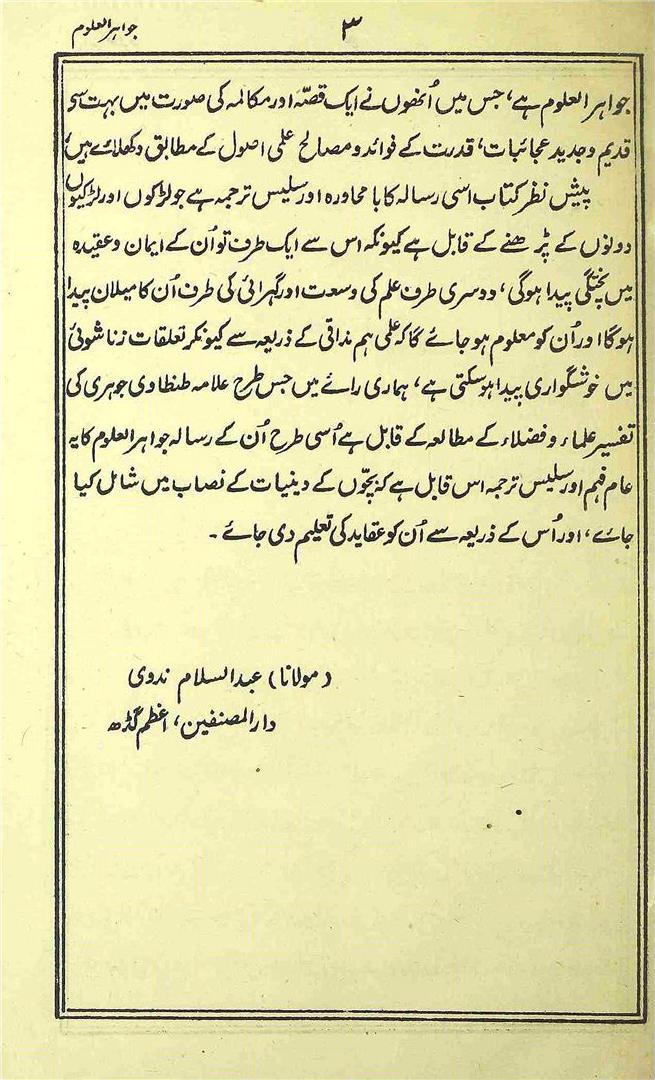 جواہر العلوم
۳
جواہر العلوم ہے، جس میں اُنھوں نے ایک قصّہ اور مکالمہ کی صورت میں بہت سی
قدیم و جدید عجائبات، قدرت کے فوائد و مصالح علمی اصول کے مطابق دکھلائے ہیں،
پیشِ نظر کتاب اسی رسالہ کا با محاورہ اور سلیس ترجمہ ہے جو لڑکوں اور لڑکیوں
دونوں کے پڑھنے کے قابل ہے کیونکہ اس سے ایک طرف تو اُن کے ایمان و عقیدہ
میں پختگی پیدا ہوگی، دوسری طرف علم کی وسعت اور گہرائی کی طرف اُن کا میلان پیدا
ہوگا اور اُن کو معلوم ہو جائے گا کہ علمی ہم مذاقی کے ذریعہ سے کیونکر تعلقات زنا شوئی
میں خوشگواری پیدا ہو سکتی ہے، ہماری رائے میں جس طرح علامہ طنطاوی جوہری کی
تفسیر علماء و فضلاء کے مطالعہ کے قابل ہے اُسی طرح اُن کے رسالہ جواہر العلوم کا یہ
عام فہم اور سلیس ترجمہ اس قابل ہے کہ بچّوں کے دینیات کے نصاب میں شامل کیا
جائے، اور اُس کے ذریعہ سے اُن کو عقاید کی تعلیم دی جائے۔
(مولانا) عبد السلام ندوی
دار المصنفین، اعظم گڈھ